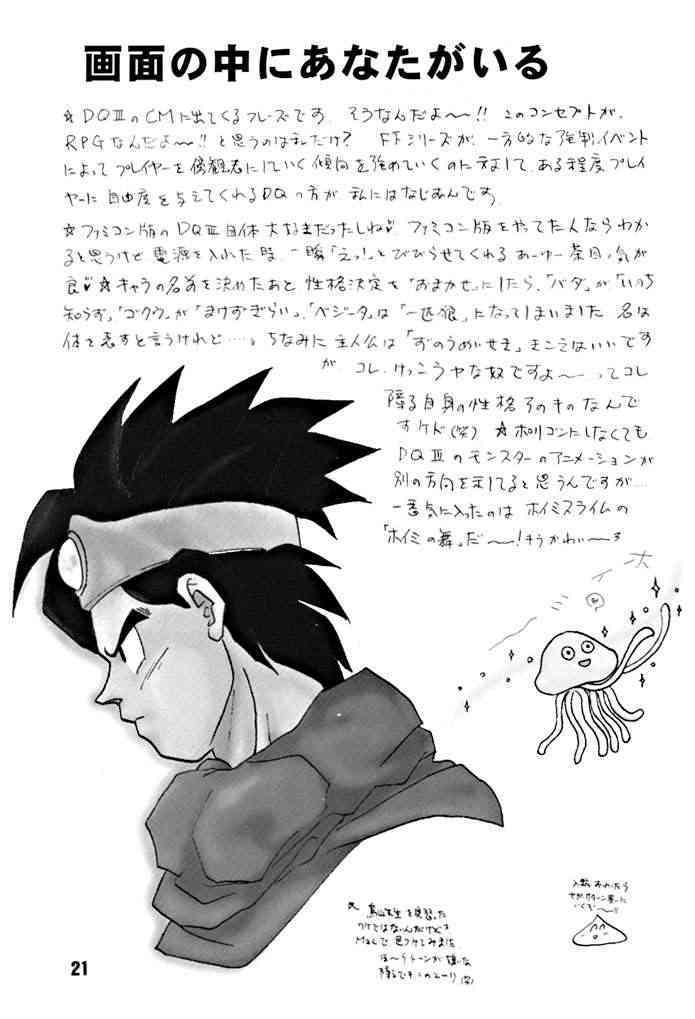 画面の中にあなたがいる
☆DQⅢのCMに出てくるフレーズです。そうなんだよ〜!! このコンセプトが、
RPGなんだよ〜!! と思うのは私だけ? FFシリーズが、一方的な強制イベント
によってプレイヤーを傍観者にしていく傾向を強めていくのに対して、ある程度プレイ
ヤーに自由度を与えてくれるDQの方が、私にはなじめんです
☆ファミコン版のDQⅢ自体大好きだったしね♡ ファミコン版をやってた人ならわか
ると思うけど電源を入れた時、一瞬「えっ!」とびびらせてくれるあーゆー茶目っ気が
良♡☆キャラの名前を決めたあと性格決定を「おまかせ」にしたら、「バーダ」が「いのち
知らず」「ゴクウ」が「まけずぎらい」、「ベジータ」は「一匹狼」になってしまいました 名は
体を表すと言うけれど……。ちなみに主人公は「ずのうめいせき」きこえはいいです
が、コレ、けっこうヤな奴ですよ〜ってコレ
障る自身の性格そのものなんで
すケド(笑) ☆ポリゴンにしなくても
DQⅢのモンスターのアニメーションが
別の方向を示してると思うんですが…
一番気に入ったのはホイミスライムの
「ホイミの舞」だ〜!チョウかわい〜
ホイ
☆鳥山先生を
Macで
21